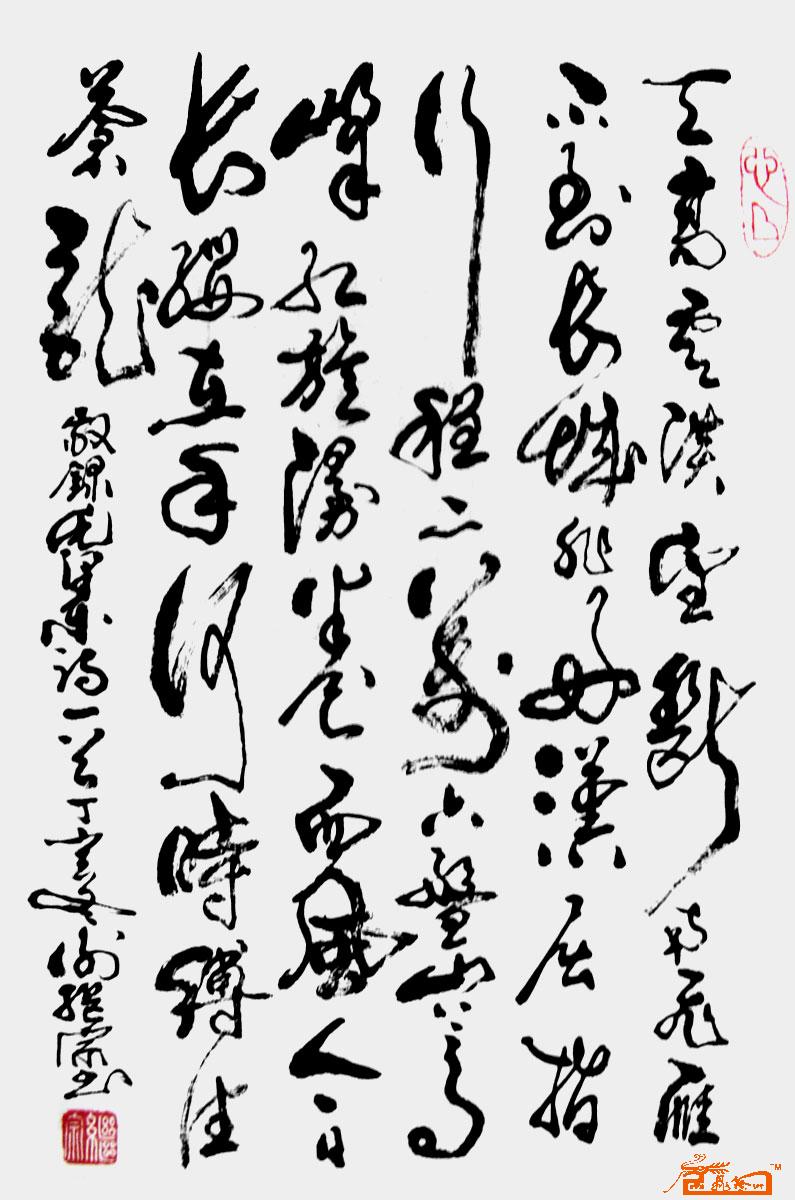 天高雲淡望斷南飛雁
不到長城非好漢屈指
行程二萬六盤山上高
峰紅旗漫卷西風今日
長纓在手何時縛住
蒼龍 敬錄毛澤東詩一首丁亥冬謝繼宗书
繼宗